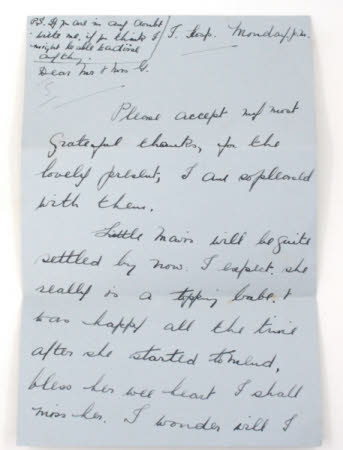 P.S. If you are in any doubt
write me, if you think I
might be able to advise
anything.
T. Hosp. Monday p.m.
Dear Mr & Mrs G.
Please accept my most
grateful thanks, for the
lovely present, I am so pleased
with them.
Little Mavis will be quite
settled by now. I expect. she
really is a topping babe. &
was happy all the time
after she started to mend,
bless her wee heart I shall
miss her. I wonder will I